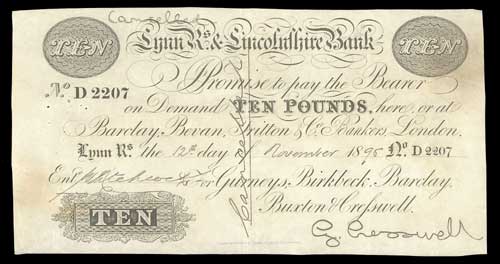 Cancelled
TEN Lynn Rs. & Lincolnshire Bank TEN
No. D 2207 I Promise to pay the Bearer
on Demand TEN POUNDS, here, or at
Barclay, Bevan, Tritton & Co. Bankers, London.
Lynn Rs. the 12th day of November 1895 No. D 2207
Entd. For Gurneys, Birkbeck, Barclay,
Buxton & Cresswell.
TEN
Cresswell
Cancelled